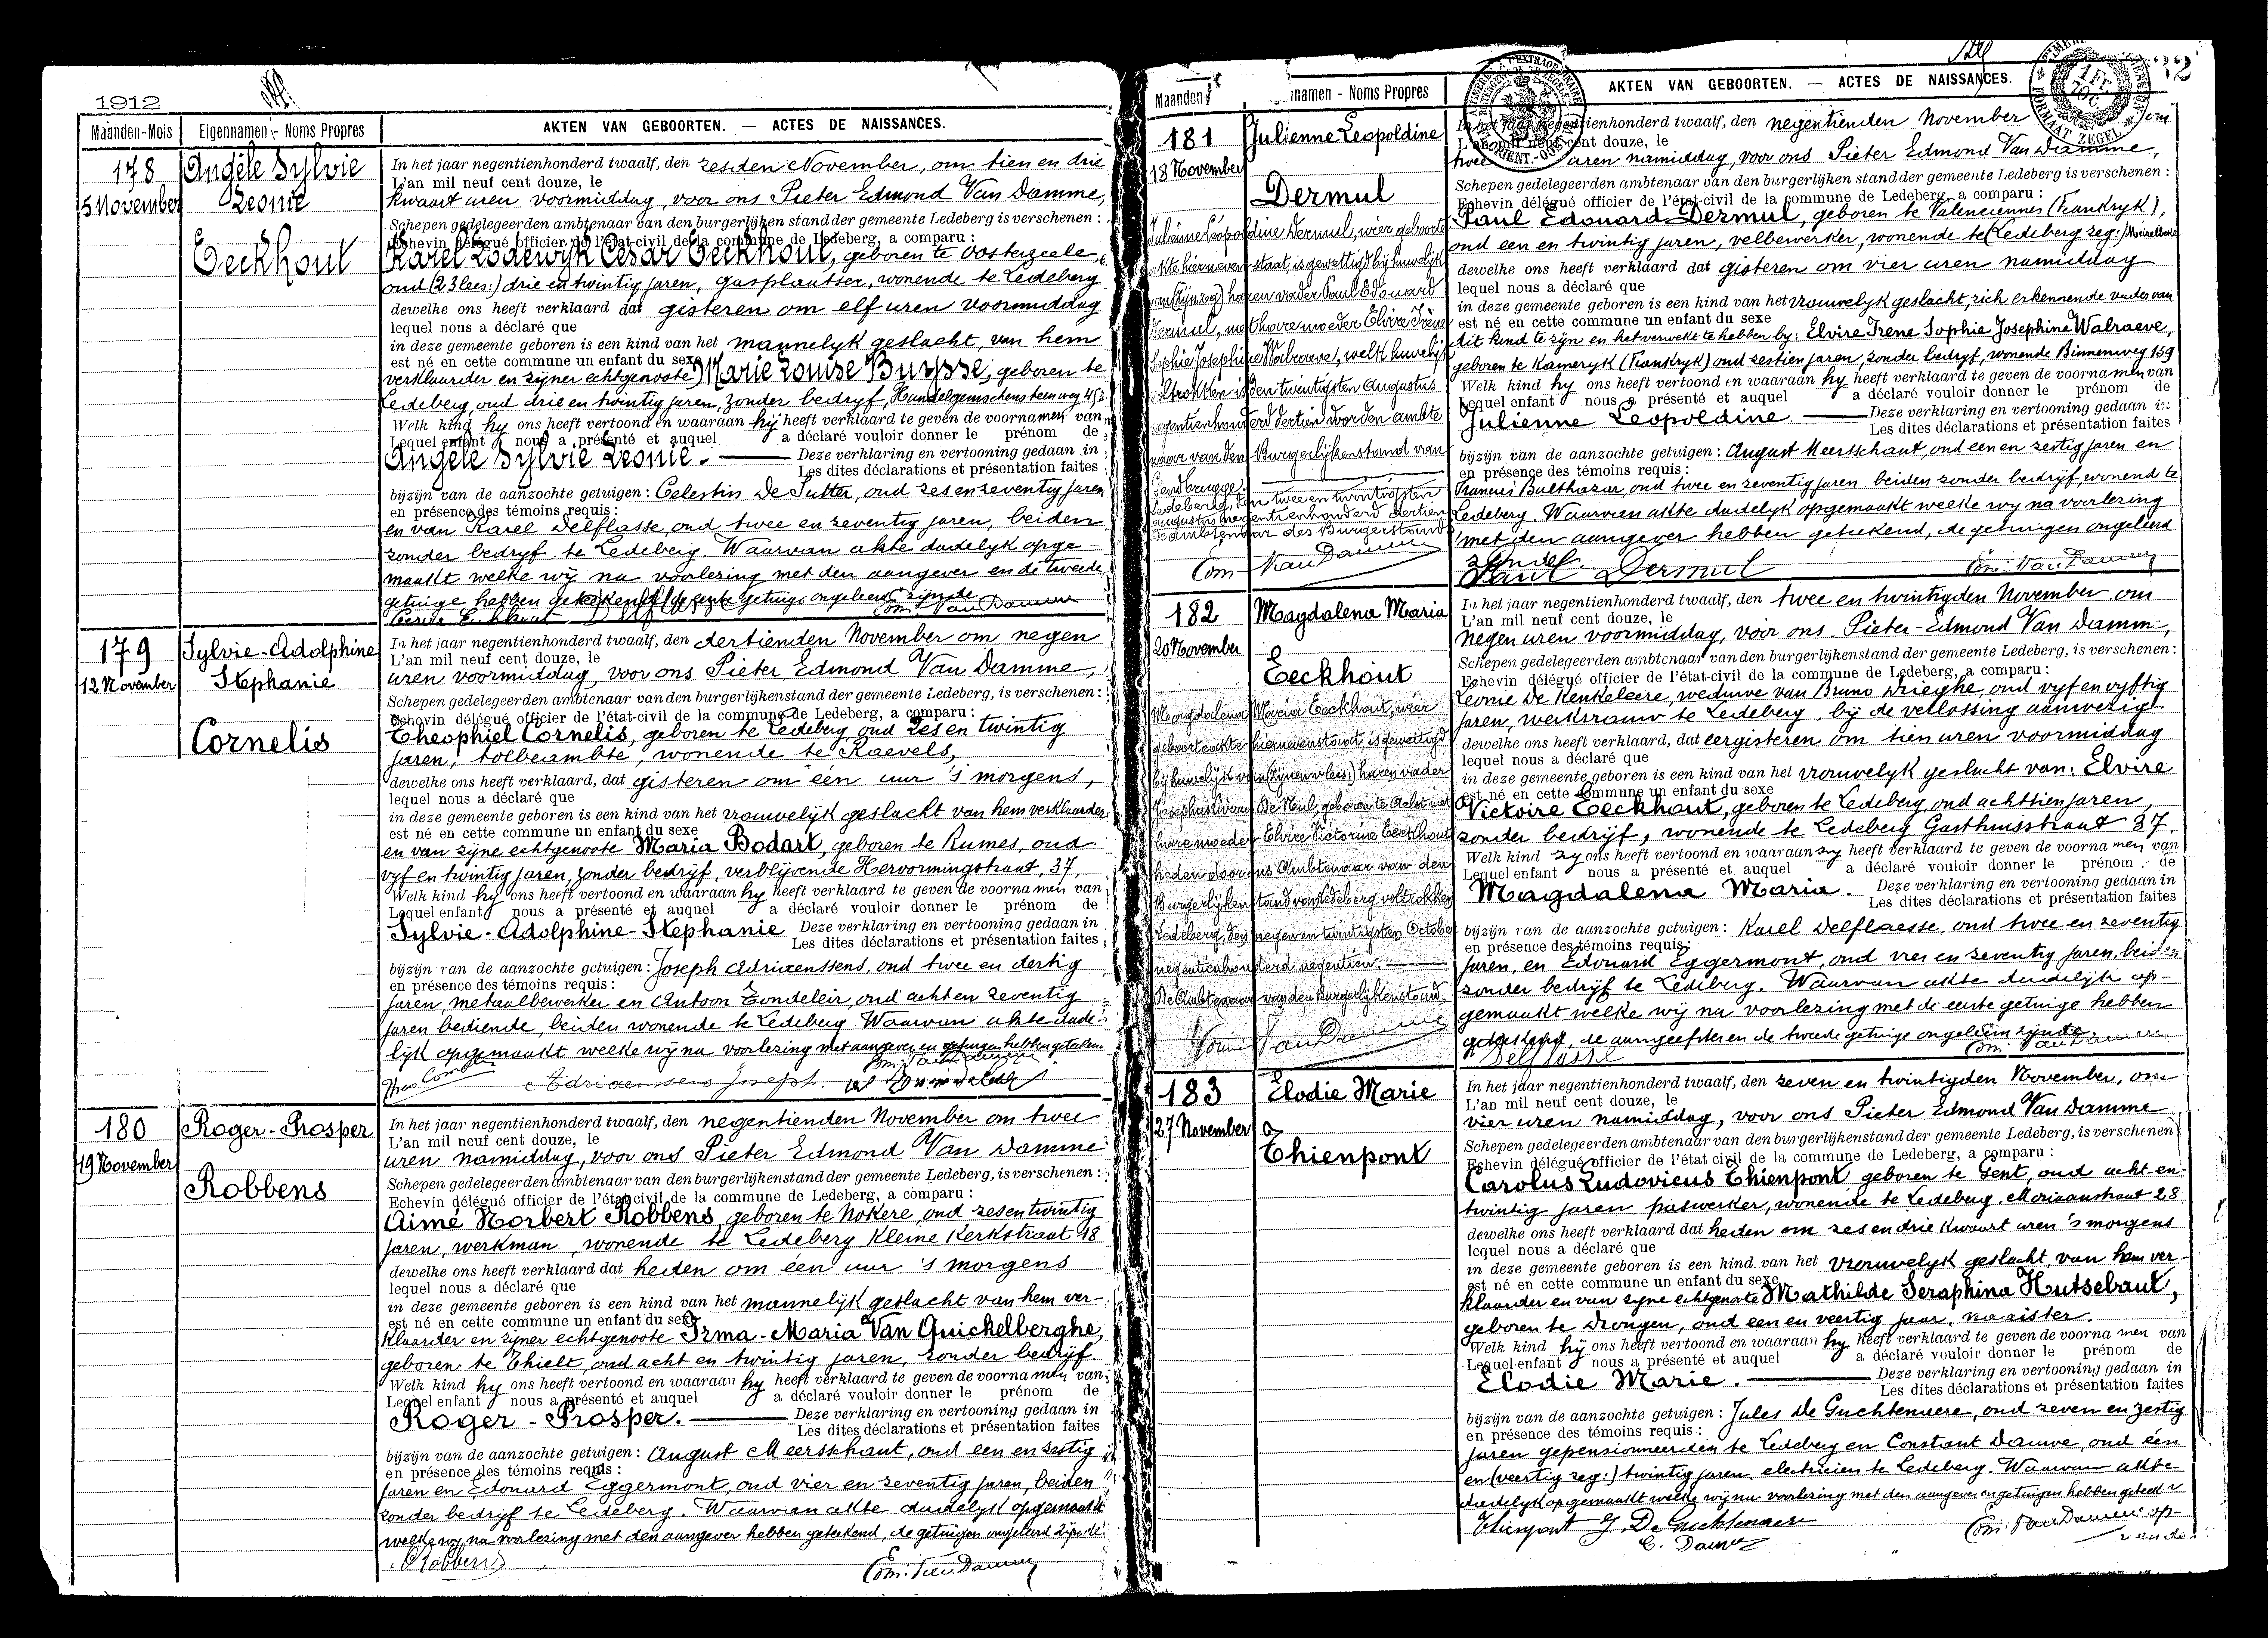 1912
Maanden-Mois
Eigennamen - Noms Propres
AKTEN VAN GEBOORTEN. — ACTES DE NAISSANCES.
178
5 November
Angèle Sylvie
Leonie
Eeckhout
In het jaar negentienhonderd twaalf, den zesden November, om tien en drie
L'an mil neuf cent douze, le
kwaart uren voormiddag, voor ons Pieter Edmond Van Damme,
Schepen gedelegeerden ambtenaar van den burgerlijken stand der gemeente Ledeberg is verschenen :
Echevin délégué officier de l'état-civil de la commune de Ledeberg, a comparu :
Karel Lodewyk Cesar Eeckhout, geboren te Oosterzeele,
oud (23 lees:) drie en twintig jaren, gasplaatser, wonende te Ledeberg
dewelke ons heeft verklaard dat gisteren om elf uren voormiddag
lequel nous a déclaré que
in deze gemeente geboren is een kind van het mannelyk geslacht, van hem
est né en cette commune un enfant du sexe
verklaarder en zijner echtgenoote Marie Louise Buysse, geboren te
Ledeberg, oud drie en twintig jaren, zonder bedryf, Hundelgemschensteenweg 453
Welk kind hy ons heeft vertoond en waaraan hij heeft verklaard te geven de voornamen van
Lequel enfant nous a présenté et auquel a déclaré vouloir donner le prénom de
Angèle Sylvie Leonie. — Deze verklaring en vertooning gedaan in
Les dites déclarations et présentation faites
bijzijn van de aanzochte getuigen : Celestin De Sutter, oud zes en zeventig jaren
en présence des témoins requis :
en van Karel Delflasse, oud twee en zeventig jaren, beiden
zonder bedryf te Ledeberg. Waarvan akte dadelyk opge-
maakt welke wij na voorlezing met den aangever en de tweede
getuige hebben geteekend, de eerste getuige ongeleerd zijnde
Em. Van Damme
179
12 November
Sylvie-Adolphine
Stephanie
Cornelis
In het jaar negentienhonderd twaalf, den dertienden November om negen
L'an mil neuf cent douze, le
uren voormiddag, voor ons Pieter Edmond Van Damme,
Schepen gedelegeerden ambtenaar van den burgerlijkenstand der gemeente Ledeberg, is verschenen :
Echevin délégué officier de l'état-civil de la commune de Ledeberg, a comparu :
Theophiel Cornelis, geboren te Ledeberg, oud zes en twintig
jaren, tolbeambte, wonende te Raevels,
dewelke ons heeft verklaard, dat gisteren om één uur 's morgens,
lequel nous a déclaré que
in deze gemeente geboren is een kind van het vrouwelijk geslacht van hem verklaarder
est né en cette commune un enfant du sexe
en van zijne echtgenoote Maria Bodart, geboren te Rumes, oud
vyf en twintig jaren, zonder bedrijf, verblijvende Hervormingstraat, 37,
Welk kind hy ons heeft vertoond en waaraan hy heeft verklaard te geven de voornamen van
Lequel enfant nous a présenté et auquel a déclaré vouloir donner le prénom de
Sylvie-Adolphine-Stephanie Deze verklaring en vertooning gedaan in
Les dites déclarations et présentation faites
bijzijn van de aanzochte getuigen : Joseph Adriaenssens, oud twee en dertig
en présence des témoins requis :
jaren, metaalbewerker en Antoon Tondeleir, oud acht en zeventig
jaren bediende, beiden wonende te Ledeberg. Waarvan akte dade-
lijk opgemaakt welke wij na voorlezing met aangever en getuigen hebben geteekend
Adriaenssens Joseph.
180
19 November
Roger-Prosper
Robbens
In het jaar negentienhonderd twaalf, den negentienden November om twee
L'an mil neuf cent douze, le
uren namiddag, voor ons Pieter Edmond Van Damme
Schepen gedelegeerden ambtenaar van den burgerlijkenstand der gemeente Ledeberg, is verschenen :
Echevin délégué officier de l'état civil de la commune de Ledeberg, a comparu :
Aimé Norbert Robbens, geboren te Nokere, oud zes en twintig
jaren, werkman, wonende te Ledeberg Kleine Kerkstraat 18
dewelke ons heeft verklaard dat heden om één uur 's morgens
lequel nous a déclaré que
in deze gemeente geboren is een kind van het mannelijk geslacht van hem ver-
est né en cette commune un enfant du sexe
klaarder en zijner echtgenoote Irma-Maria Van Quickelberghe,
geboren te Thielt, oud acht en twintig jaren, zonder bedrijf.
Welk kind hy ons heeft vertoond en waaraan hy heeft verklaard te geven de voornamen van
Lequel enfant nous a présenté et auquel a déclaré vouloir donner le prénom de
Roger-Prosper. — Deze verklaring en vertooning gedaan in
Les dites déclarations et présentation faites
bijzijn van de aanzochte getuigen : August Meersschaut, oud een en zestig
en présence des témoins requis :
jaren en Edouard Eggermont, oud vier en zeventig jaren, beiden
zonder bedrijf te Ledeberg. Waarvan akte dadelyk opgemaakt
welke wy na voorlezing met den aangever hebben geteekend, de getuigen ongeleerd zijnde
Robbens
Em. Van Damme
Maanden
namen - Noms Propres
AKTEN VAN GEBOORTEN. — ACTES DE NAISSANCES.
181
18 November
Julienne Leopoldine
Dermul
Julienne Leopoldine Dermul, wier geboorte
akte hierneven staat, is gewettigd bij huwelijk
van (zijn zeg:) haren vader Paul Edouard
Dermul, met hare moeder Elvire Irène
Sophie Josephine Walraeve, welk huwelijk
voltrokken is den twintigsten Augustus
negentienhonderd dertien voor den ambte
naar van den Burgerlijkenstand van
Gendbrugge.
Ledeberg, den twee en twintigsten
augustus negentienhonderd dertien
De ambtenaar des Burgerstands
Em. Van Damme
In het jaar negentienhonderd twaalf, den negentienden November om
L'an mil neuf cent douze, le
twee uren namiddag, voor ons Pieter Edmond Van Damme,
Schepen gedelegeerden ambtenaar van den burgerlijken stand der gemeente Ledeberg is verschenen :
Echevin délégué officier de l'état-civil de la commune de Ledeberg, a comparu :
Paul Edouard Dermul, geboren te Valenciennes (Frankryk),
oud een en twintig jaren, velbewerker, wonende te (Ledeberg zeg:) Meirelbeke
dewelke ons heeft verklaard dat gisteren om vier uren namiddag
lequel nous a déclaré que
in deze gemeente geboren is een kind van het vrouwelyk geslacht, zich erkennende vader van
est né en cette commune un enfant du sexe
dit kind te zijn en het verwekt te hebben by: Elvire Irene Sophie Josephine Walraeve,
geboren te Kameryk (Frankryk) oud zestien jaren, zonder bedryf, wonende Binnenweg 159
Welk kind hy ons heeft vertoond en waaraan hy heeft verklaard te geven de voornamen van
Lequel enfant nous a présenté et auquel a déclaré vouloir donner le prénom de
Julienne Leopoldine. — Deze verklaring en vertooning gedaan in
Les dites déclarations et présentation faites
bijzijn van de aanzochte getuigen : August Meersschaut, oud een en zestig jaren en
en présence des témoins requis :
Francies Balthazar, oud twee en zeventig jaren. beiden zonder bedrijf, wonende te
Ledeberg. Waarvan akte dadelyk opgemaakt welke wy na voorlezing
met den aangever hebben geteekend, de getuigen ongeleerd
zijnde.
Paul Dermul
Em. Van Damme
182
20 November
Magdalena Maria
Eeckhout
Magdalena Maria Eeckhout, wier
geboorteakte hiernevenstaat, is gewettigd
bij huwelijk van (zijnen vlees:) haren vader
Josephus Livinus De Neil, geboren te Aalst met
hare moeder Elvire Victorine Eeckhout
heden door ons Ambtenaar van den
Burgerlijken stand van Ledeberg voltrokken
Ledeberg, den negen en twintigsten October
negentienhonderd negentien. —
De Ambtenaar van den Burgerlijkenstand,
Van Damme
In het jaar negentienhonderd twaalf, den twee en twintigden November om
L'an mil neuf cent douze, le
negen uren voormiddag, voor ons Pieter-Edmond Van Damme,
Schepen gedelegeerden ambtenaar van den burgerlijkenstand der gemeente Ledeberg, is verschenen :
Echevin délégué officier de l'état-civil de la commune de Ledeberg, a comparu :
Leonie De Kenkeleere, weduwe van Bruno Drieghe, oud vyf en vyftig
jaren, werkvrouw te Ledeberg, bij de verlossing aanwezig
dewelke ons heeft verklaard, dat eergisteren om tien uren voormiddag
lequel nous a déclaré que
in deze gemeente geboren is een kind van het vrouwelyk geslacht van: Elvire
est né en cette commune un enfant du sexe
Victoire Eeckhout, geboren te Ledeberg, oud achttien jaren,
zonder bedrijf, wonende te Ledeberg Gasthuisstraat 37.
Welk kind zy ons heeft vertoond en waaraan zy heeft verklaard te geven de voornamen van
Lequel enfant nous a présenté et auquel a déclaré vouloir donner le prénom de
Magdalena Maria. — Deze verklaring en vertooning gedaan in
Les dites déclarations et présentation faites
bijzijn van de aanzochte getuigen : Karel Delflaesse, oud twee en zeventig
en présence des témoins requis :
jaren, en Edouard Eggermont, oud vier en zeventig jaren, beiden
zonder bedrijf te Ledeberg. Waarvan akte dadelijk op-
gemaakt welke wij na voorlezing met de eerste getuige hebben
geteekend, de aangeefster en de tweede getuige ongeleerd zijnde.
Delflasse
Em. Van Damme
183
27 November
Elodie Marie
Thienpont
In het jaar negentienhonderd twaalf, den zeven en twintigden November, om
L'an mil neuf cent douze, le
vier uren namiddag, voor ons Pieter Edmond Van Damme
Schepen gedelegeerden ambtenaar van den burgerlijkenstand der gemeente Ledeberg, is verschenen
Echevin délégué officier de l'état civil de la commune de Ledeberg, a comparu :
Carolus Ludovicus Thienpont, geboren te Gent, oud acht en
twintig jaren paswerker, wonende te Ledeberg, Moriaanstraat 28
dewelke ons heeft verklaard dat heden om zes en drie kwaart uren 's morgens
lequel nous a déclaré que
in deze gemeente geboren is een kind van het vrouwelyk geslacht, van hem ver-
est né en cette commune un enfant du sexe
klaarder en van zijne echtgenoote Mathilde Seraphina Hutsebaut,
geboren te Drongen, oud een en veertig jaar, naaister.
Welk kind hij ons heeft vertoond en waaraan hy heeft verklaard te geven de voornamen van
Lequel enfant nous a présenté et auquel a déclaré vouloir donner le prénom de
Elodie Marie. — Deze verklaring en vertooning gedaan in
Les dites déclarations et présentation faites
bijzijn van de aanzochte getuigen : Jules De Guchtenaere, oud zeven en zestig
en présence des témoins requis :
jaren gepensionneerden te Ledeberg en Constant Dauwe, oud één
en (veertig zeg:) twintig jaren, electricien te Ledeberg. Waarvan akte
dadelyk opgemaakt welke wij na voorlezing met den aangever en getuigen hebben geteek
Thienpont J. De Guchtenaere
C. Dauwe
Em. Van Damme